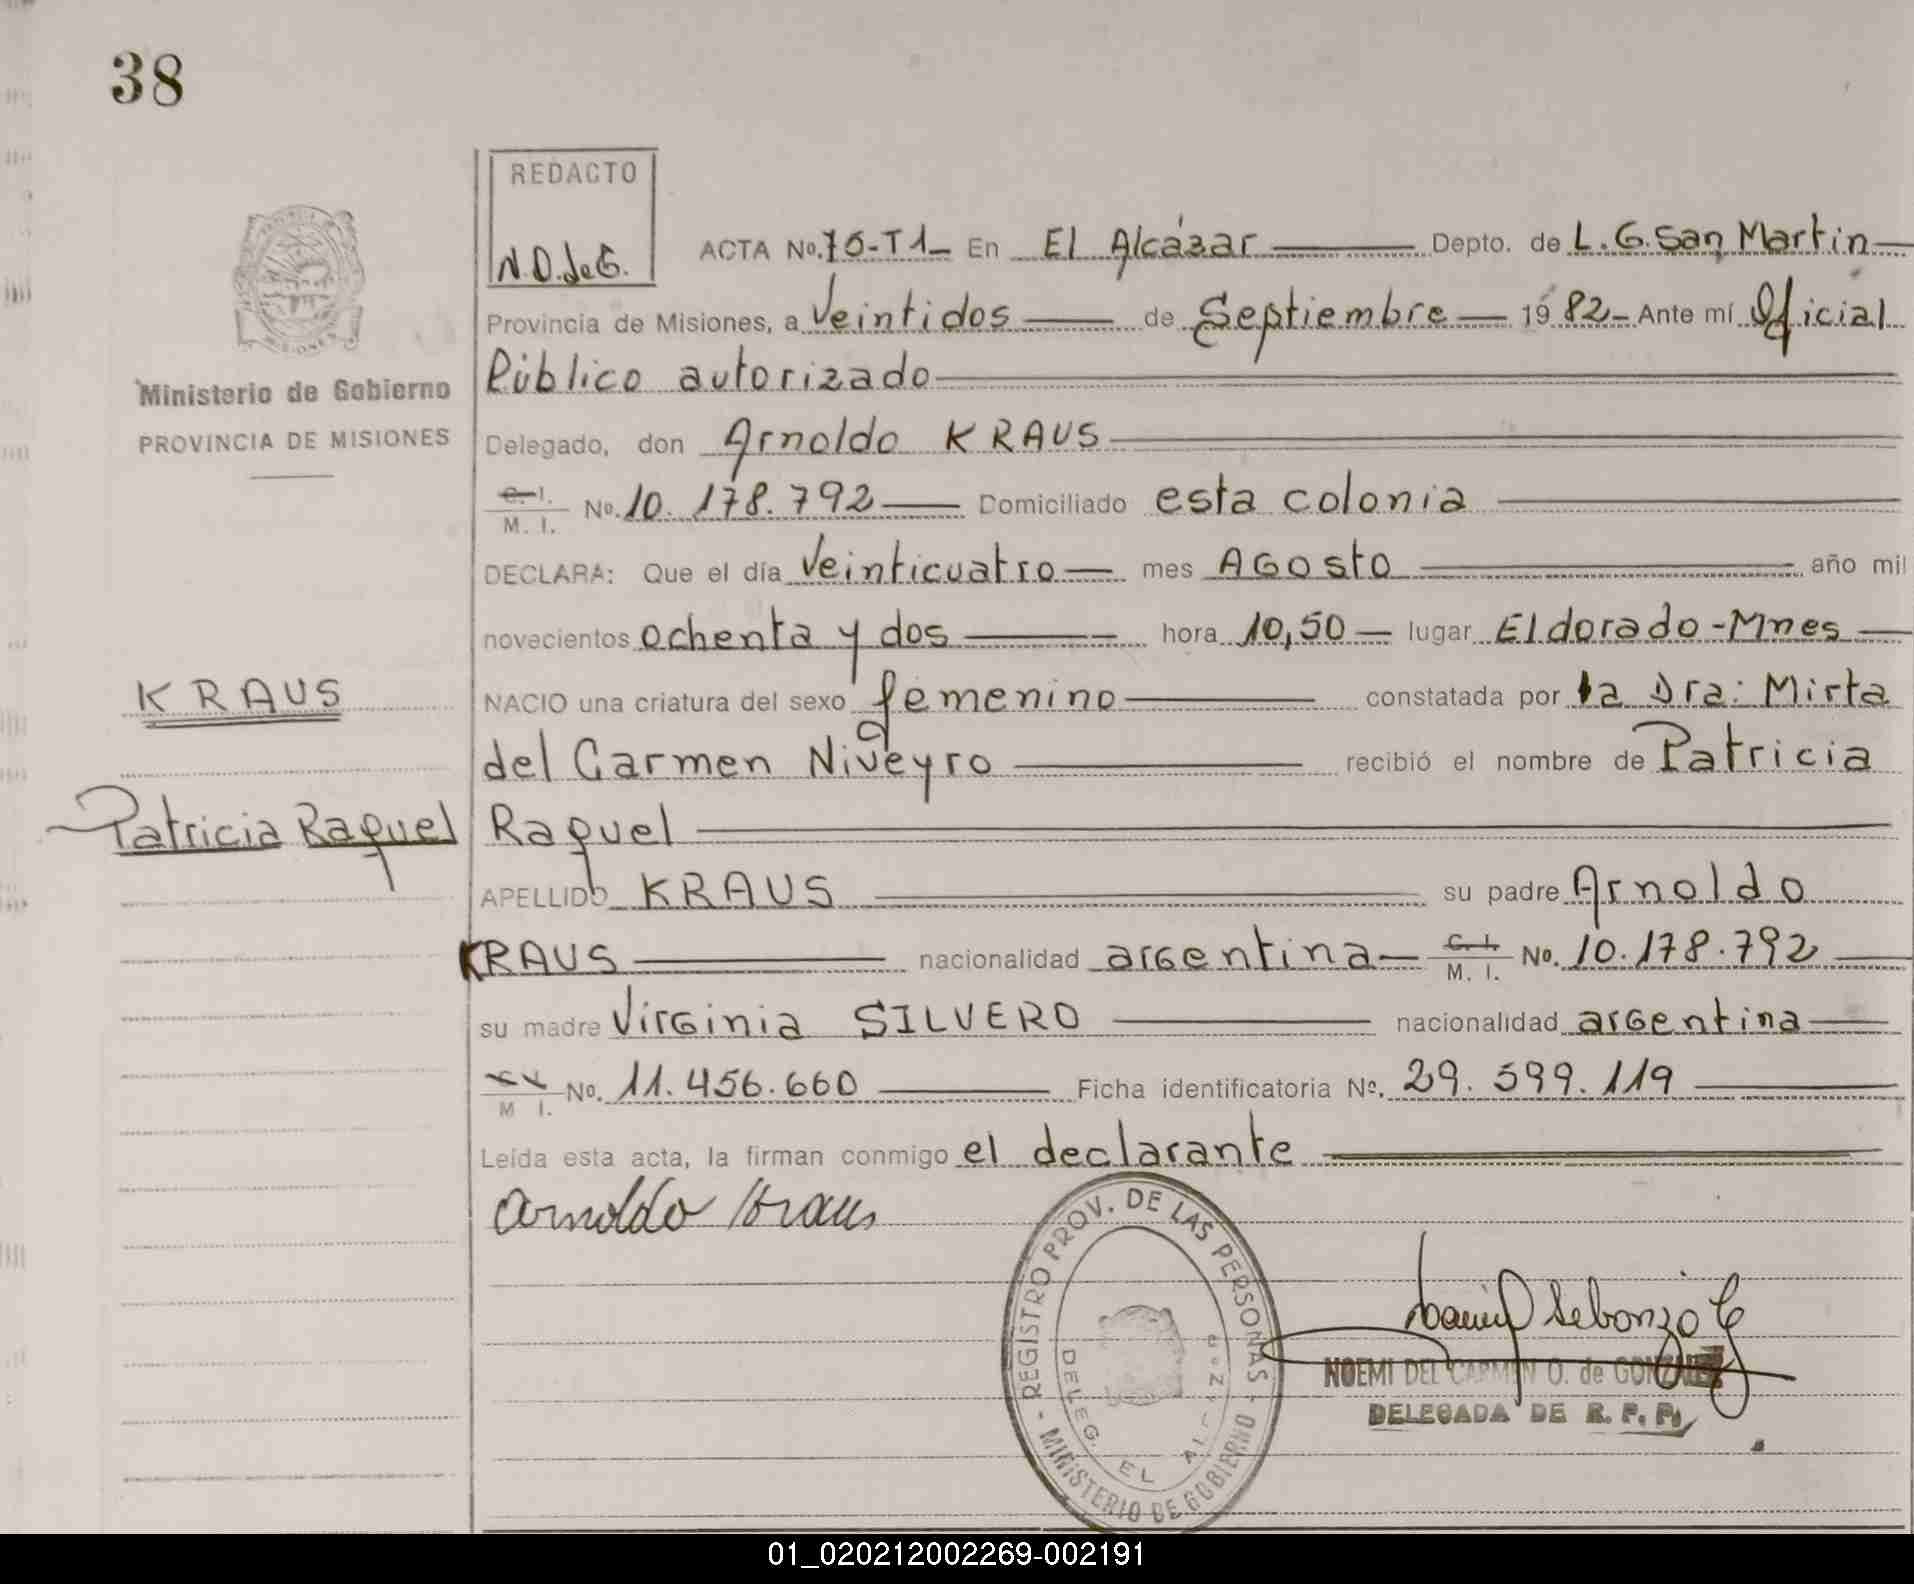 38
REDACTO
N.O.deG.
ACTA No. 75-T1- En El Alcázar Depto. de L.G.San Martin
Provincia de Misiones, a veintidos de Septiembre 1982- Ante mí Oficial
Público autorizado
Ministerio de Gobierno
PROVINCIA DE MISIONES
Delegado, don Arnoldo KRAUS
C. I. M. I. No. 10.178.792 Domiciliado esta colonia
DECLARA: Que el día veinticuatro mes AGosto año mil
novecientos ochenta y dos hora 10,50 lugar Eldorado-Mnes
NACIO una criatura del sexo femenino constatada por la Dra: Mirta
del Carmen Niveyro recibió el nombre de Patricia
Raquel
KRAUS
Patricia Raquel
APELLIDO KRAUS su padre Arnoldo
KRAUS nacionalidad argentina C. I. M. I. No. 10.178.792
su madre Virginia SILVERO nacionalidad argentina
M I. No. 11.456.660 Ficha identificatoria No. 29.599.119
Leída esta acta, la firman conmigo el declarante
Arnoldo Kraus
REGISTRO PROV. DE LAS PERSONAS - MINISTERIO DE GOBIERNO -
DELEG. EL Alcázar
NOEMI DEL CARMEN O. de GONZALEZ
DELEGADA DE R. P. P.
01_020212002269-002191